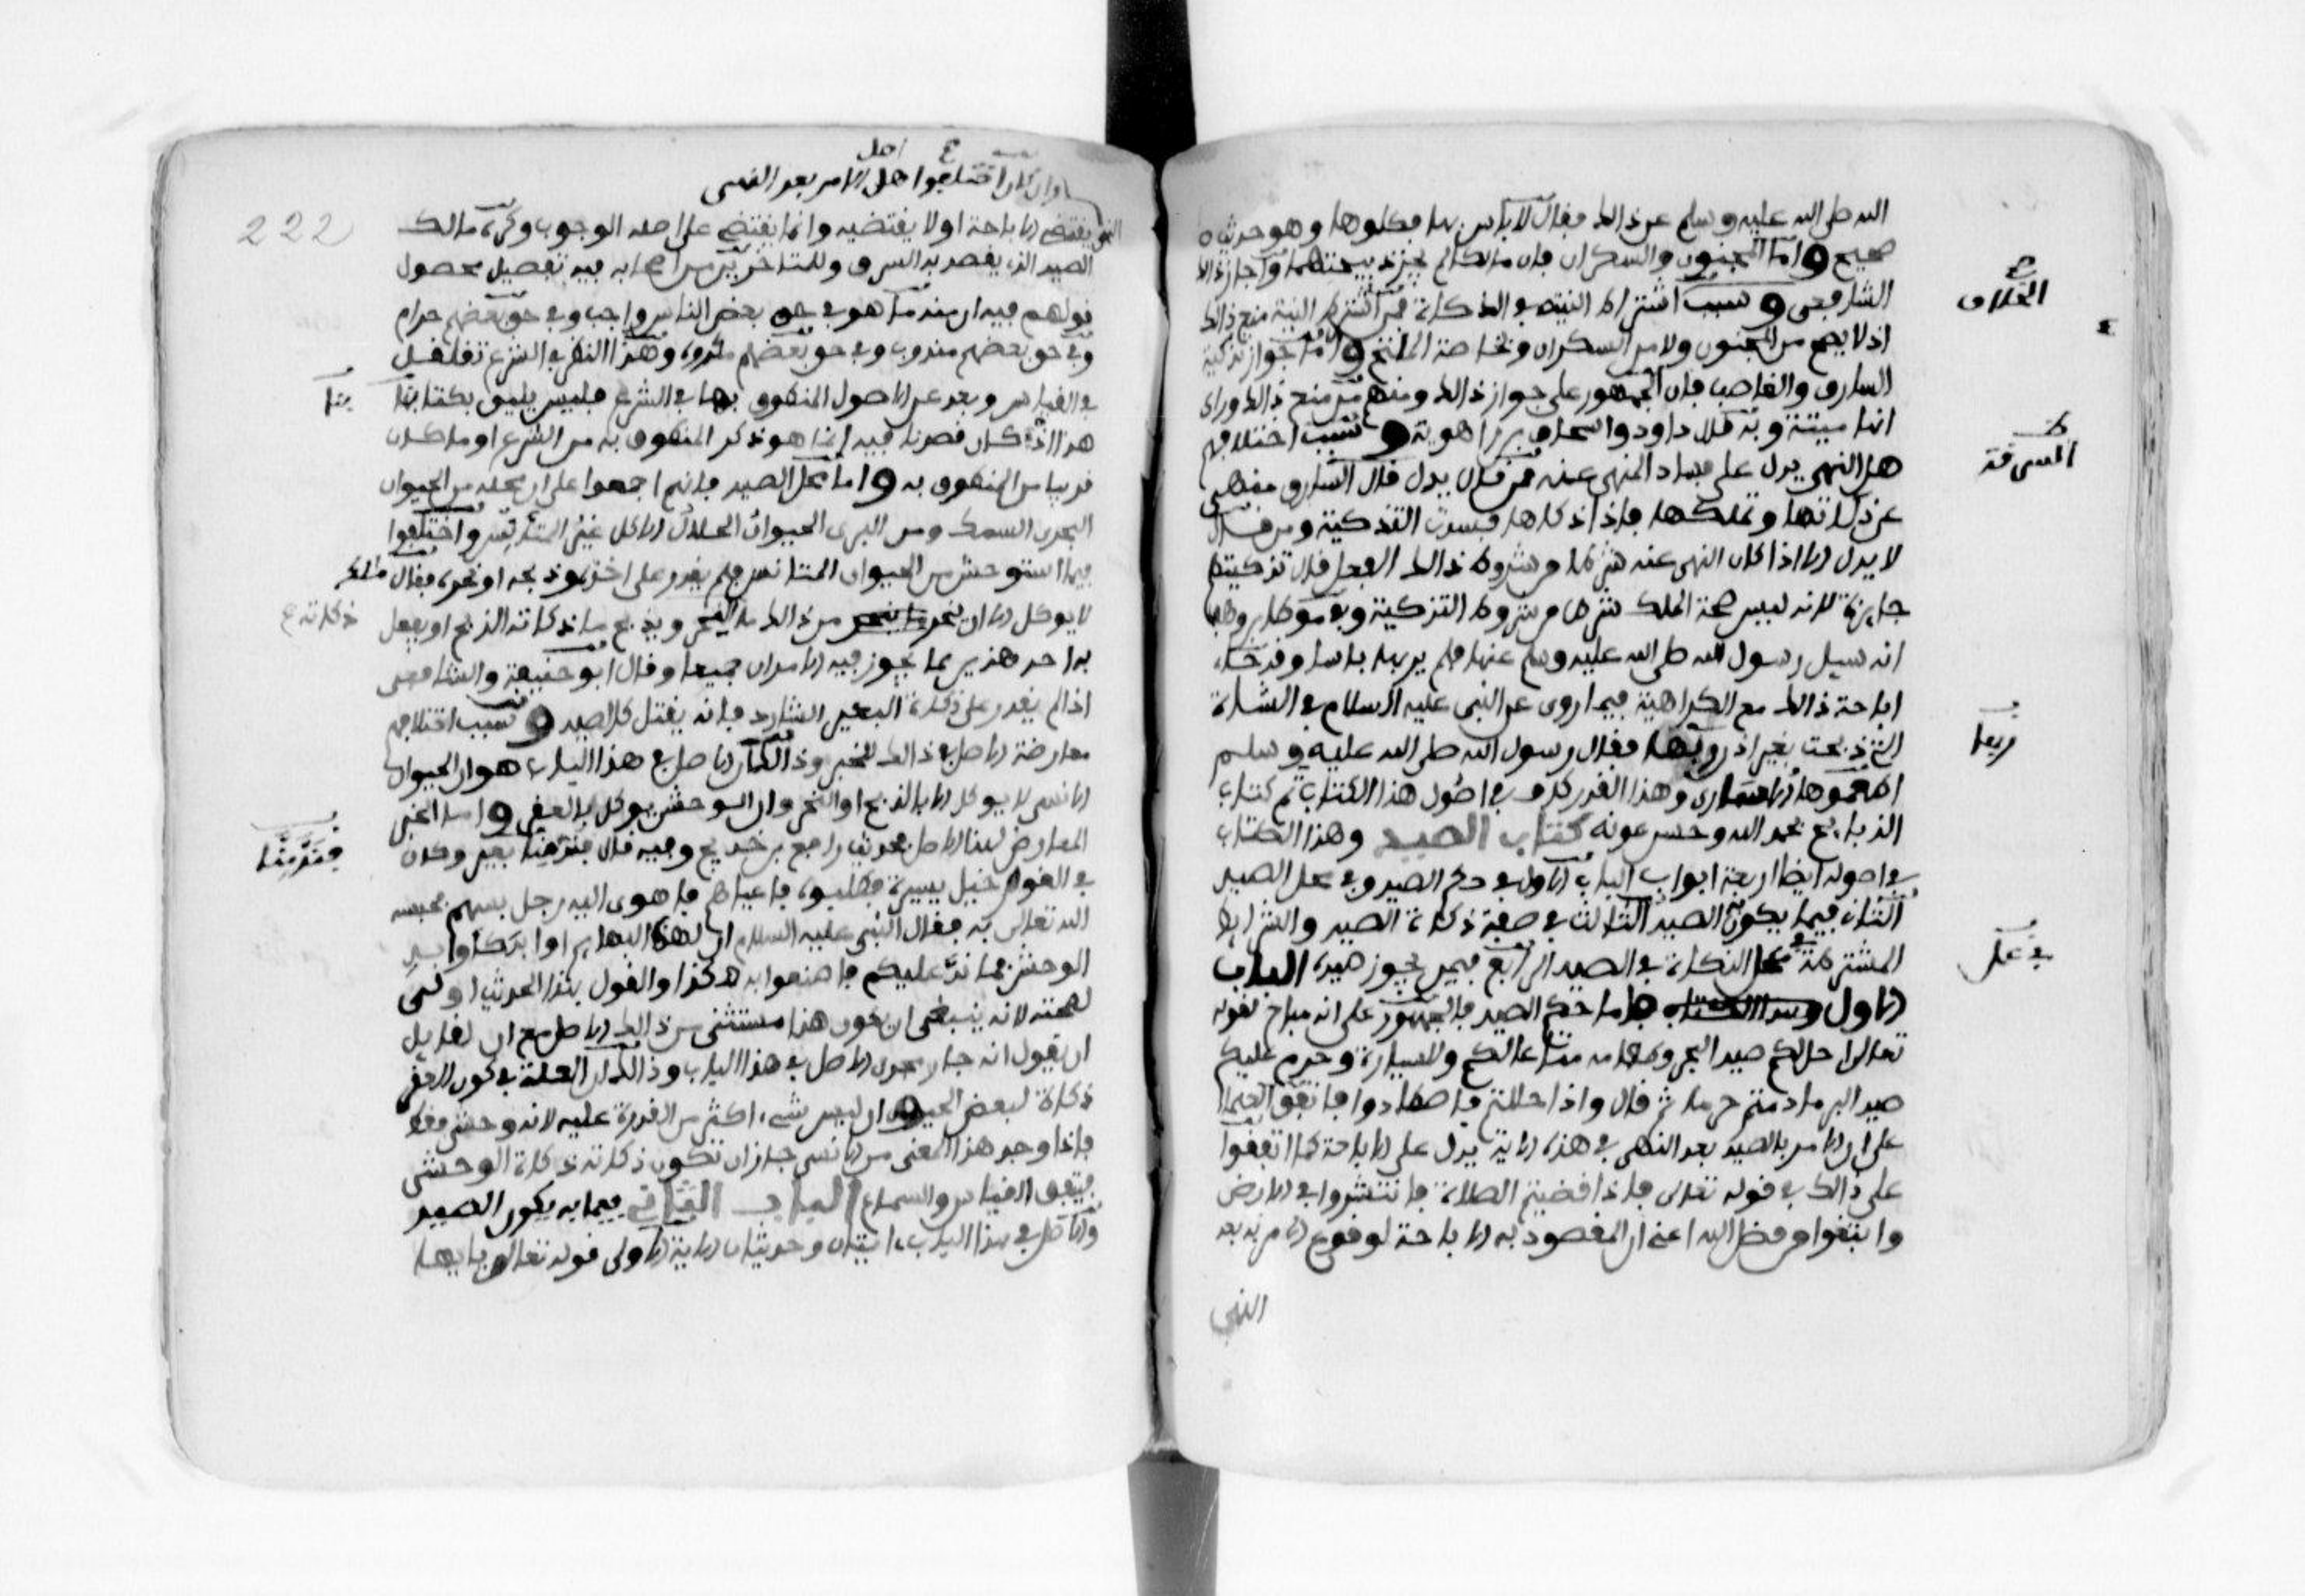 الله صلى الله عليه وسلم عن ذالك فقال لا باس بها فكلوها وهو حديث
صحيح واما المجنون والسكران فان مالكا لم يجز ذبيحتهما واجاز ذالك
الشافعي وسبب الخلاف اشتراط النية في الذكاة فمن اشترط النية منع ذالك
اذ لا يصح من المجنون ولا من السكران وبخاصة الملتخ واما جواز تذكية
السارق والغاصب فان الجمهور على جواز ذالك ومنهم من منع ذالك وراى
انها ميتة وبه قال داود واسحاق بن راهويه وسبب اختلافهم
هل النهي يدل على فساد المنهي عنه فمن قال يدل قال السارق منهي
عن ذكاتها وتملكها فاذا ذكاها فسدت التذكية ومن قال
لا يدل الا اذا كان النهي عنه شرطا من شروط ذالك الفعل قال تذكيتهم
جايزة لانه ليس صحة الملك شرطا من شروط التذكية وفي موطا بن وهب
انه سيل رسول الله صلى الله عليه وسلم عنها فلم ير بها باسا وقد جاء
اباحة ذالك مع الكراهية فيما روي عن النبي عليه السلام في الشاة
التي ذبحت بغير اذن ربها فقال رسول الله صلى الله عليه وسلم
اطعموها الاسارى وهذا القدر كاف في اصول هذا الكتاب تم كتاب
الذبايح بحمد الله وحسن عونه كتاب الصيد وهذا الكتاب
في اصوله ايضا اربعة ابواب الباب الاول في حكم الصيد وفي محل الصيد
الثاني فيما يكون به الصيد الثالث في صفة ذكاة الصيد والشرايط
المشترطة في عمل الذكاة في الصيد الرابع فيمن يجوز صيده الباب
الاول فاما حكم الصيد فالجمهور على انه مباح لقوله
تعالى احل لكم صيد البحر وطعامه متاعا لكم وللسيارة وحرم عليكم
صيد البر ما دمتم حرما ثم قال واذا حللتم فاصطادوا فاتفق العلما
على ان الامر بالصيد بعد النهي في هذه الاية يدل على الاباحة كما اتفقوا
على ذالك في قوله تعالى فاذا قضيتم الصلاة فانتشروا في الارض
وابتغوا من فضل الله اعني ان المقصود به الاباحة لوقوع الامر به بعد
النهي
الخلاف
السرقة
ربها
في عمل
222
وان كان اختلفوا هل الامر بعد النهي
يقتضي الاباحة او لا يقتضيه وانما يقتضي على اصله الوجوب وكره مالك
الصيد الذي يقصد به السرف وللمتاخرين من اصحابه فيه تفصيل محصول
قولهم فيه ان منه ما هو في حق بعض الناس واجب وفي حق بعضهم حرام
وفي حق بعضهم مندوب وفي حق بعضهم مكروه وهذا النظر في الشرع تغلغل
في القياس وبعد عن الاصول المنطوق بها في الشرع فليس يليق بكتابنا
هذا اذ كان قصدنا فيه انما هو ذكر المنطوق به من الشرع او ما كان
قريبا من المنطوق به واما محل الصيد فانهم اجمعوا على ان محله من الحيوان
البحري السمك ومن البري الحيوان الحلال الاكل غير المتانس واختلفوا
فيما استوحش من الحيوان المتانس فلم يقدر على اخذه وذبحه او نحره فقال مالك
لا يوكل الا ان ينحر من ذالك ما ينحر ويذبح ما ذكاته الذبح او يفعل
به احد هذين مما يجوز فيه الامران جميعا وقال ابو حنيفة والشافعي
اذا لم يقدر على ذكاة البعير الشارد فانه يقتل كالصيد وسبب اختلافهم
معارضة الاصل في ذالك للخبر وذالك ان الاصل في هذا الباب هو ان الحيوان
الانسي لا يوكل الا بالذبح او النحر وان الوحشي يوكل بالعقر واما الخبر
المعارض لهذا الاصل فحديث رافع بن خديج وفيه قال فند منها بعير وكان
في القوم خيل يسيرة فطلبوه فاعياهم فاهوى اليه رجل بسهم فحبسه
الله تعالى به فقال النبي عليه السلام ان لهذه البهايم اوابد كاوابد
الوحش فما ند عليكم فاصنعوا به هكذا والقول بهذا الحديث اولى
لصحته لانه ينبغي ان يكون هذا مستثنى من ذالك الاصل مع ان لقايل
ان يقول انه جار مجرى الاصل في هذا الباب وذالك ان العلة في كون العقر
ذكاة لبعض الحيوان ليس شيء اكثر من القدرة عليه لانه وحشي فقط
فاذا وجد هذا المعنى من الانسي جاز ان تكون ذكاته ذكاة الوحشي
فيتفق القياس والسماع الباب الثاني فيما به يكون الصيد
والاصل في هذا الباب ايتان وحديثان الاية الاولى قوله تعالى يايها
بنا
ذكاته